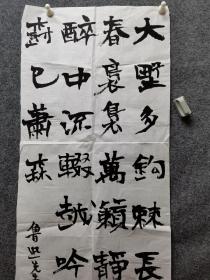 大野多鈎棘長
春裊裊萬籟靜
醉中流輟越吟
封已蕭森
魯迅先生